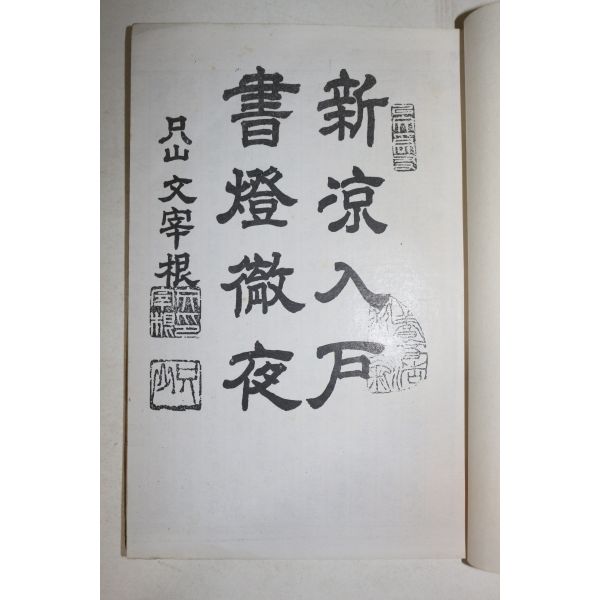 新凉入戶
書燈徹夜
只山 文宰根
文宰根印
只山